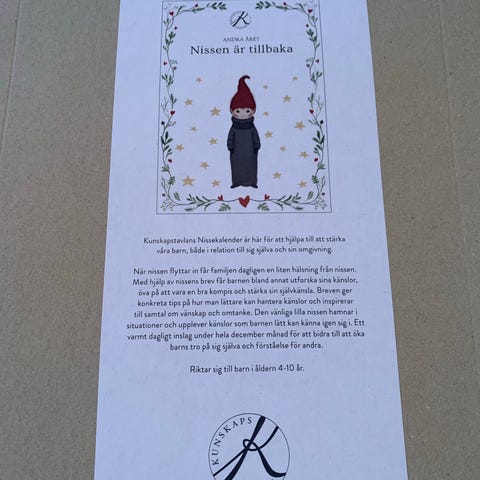 ANDRA ÅRET
Nissen är tillbaka
Kunskapstavlans Nissekalender är här för att hjälpa till att stärka
våra barn, både i relation till sig själva och sin omgivning.
När nissen flyttar in får familjen dagligen en liten hälsning från nissen.
Med hjälp av nissens brev får barnen bland annat utforska sina känslor,
öva på att vara en bra kompis och stärka sin självkänsla. Breven ger
konkreta tips på hur man lättare kan hantera känslor och inspirerar
till samtal om vänskap och omtanke. Den vänliga lilla nissen hamnar i
situationer och upplever känslor som barnen lätt kan känna igen sig i. Ett
varmt dagligt inslag under hela december månad för att bidra till att öka
barns tro på sig själva och förståelse för andra.
Riktar sig till barn i åldern 4-10 år.
KUNSKAPS
K